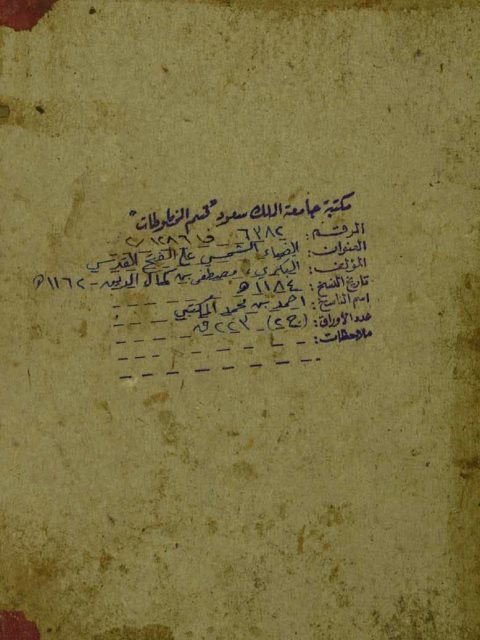 مكتبة جامعة الملك سعود "قسم المخطوطات"
الرقم: ٦٣٨٢ - ف ١٢٨٦ / ٢
العنوان: الضياء الشمسي على الفتح القدسي
المؤلف: البكري، مصطفى بن كمال الدين - ١١٦٢ هـ
تاريخ النسخ: ١١٨٤ هـ
اسم الناسخ: احمد بن محمد المكتبي
عدد الأوراق: (ج ٢) - ٢٢٣ ق
ملاحظات: